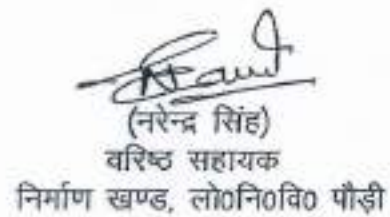 (नरेन्द्र सिंह)
वरिष्ठ सहायक
निर्माण खण्ड, लो0नि0वि0 पौड़ी